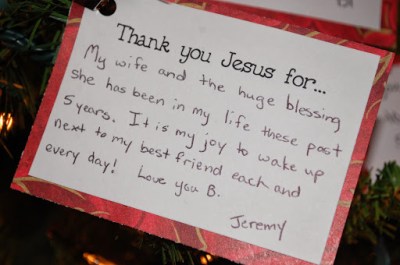 Thank you Jesus for...
My wife and the huge blessing
she has been in my life these post
5 years. It is my joy to wake up
next to my best friend each and
every day! Love you B.
Jeremy